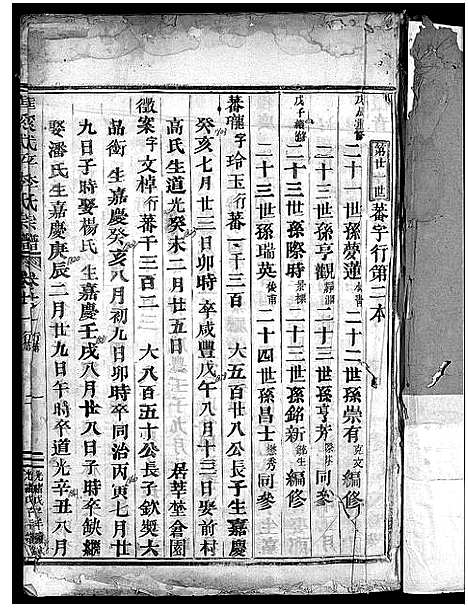 第廿一世 蕃字行第二本
二十一世孫夢蓮 二十二世孫崇有克文 編修
戊子續修 二十三世孫亨觀 二十三世孫亨芳 同參
二十三世孫際時 二十三世孫銘新 編修
二十三世孫瑞英 二十四世孫昌士懋秀 同參
蕃瓏字玲玉行蕃一千三百 大五百廿八公長子生嘉慶
癸亥七月廿三日卯時卒咸豐戊午八月十三日娶前村
高氏生道光癸未二月廿五日 居莘堂倉園
徵案字文棹行蕃千三百 大八百五十公長子欽獎六
品銜生嘉慶癸亥八月初九日卯時卒同治丙寅七月廿
九日子時娶楊氏生嘉慶壬戌八月廿八日子時卒缺繼
娶潘氏生嘉慶庚辰二月廿九日午時卒道光辛丑八月
李氏宗譜 卷廿